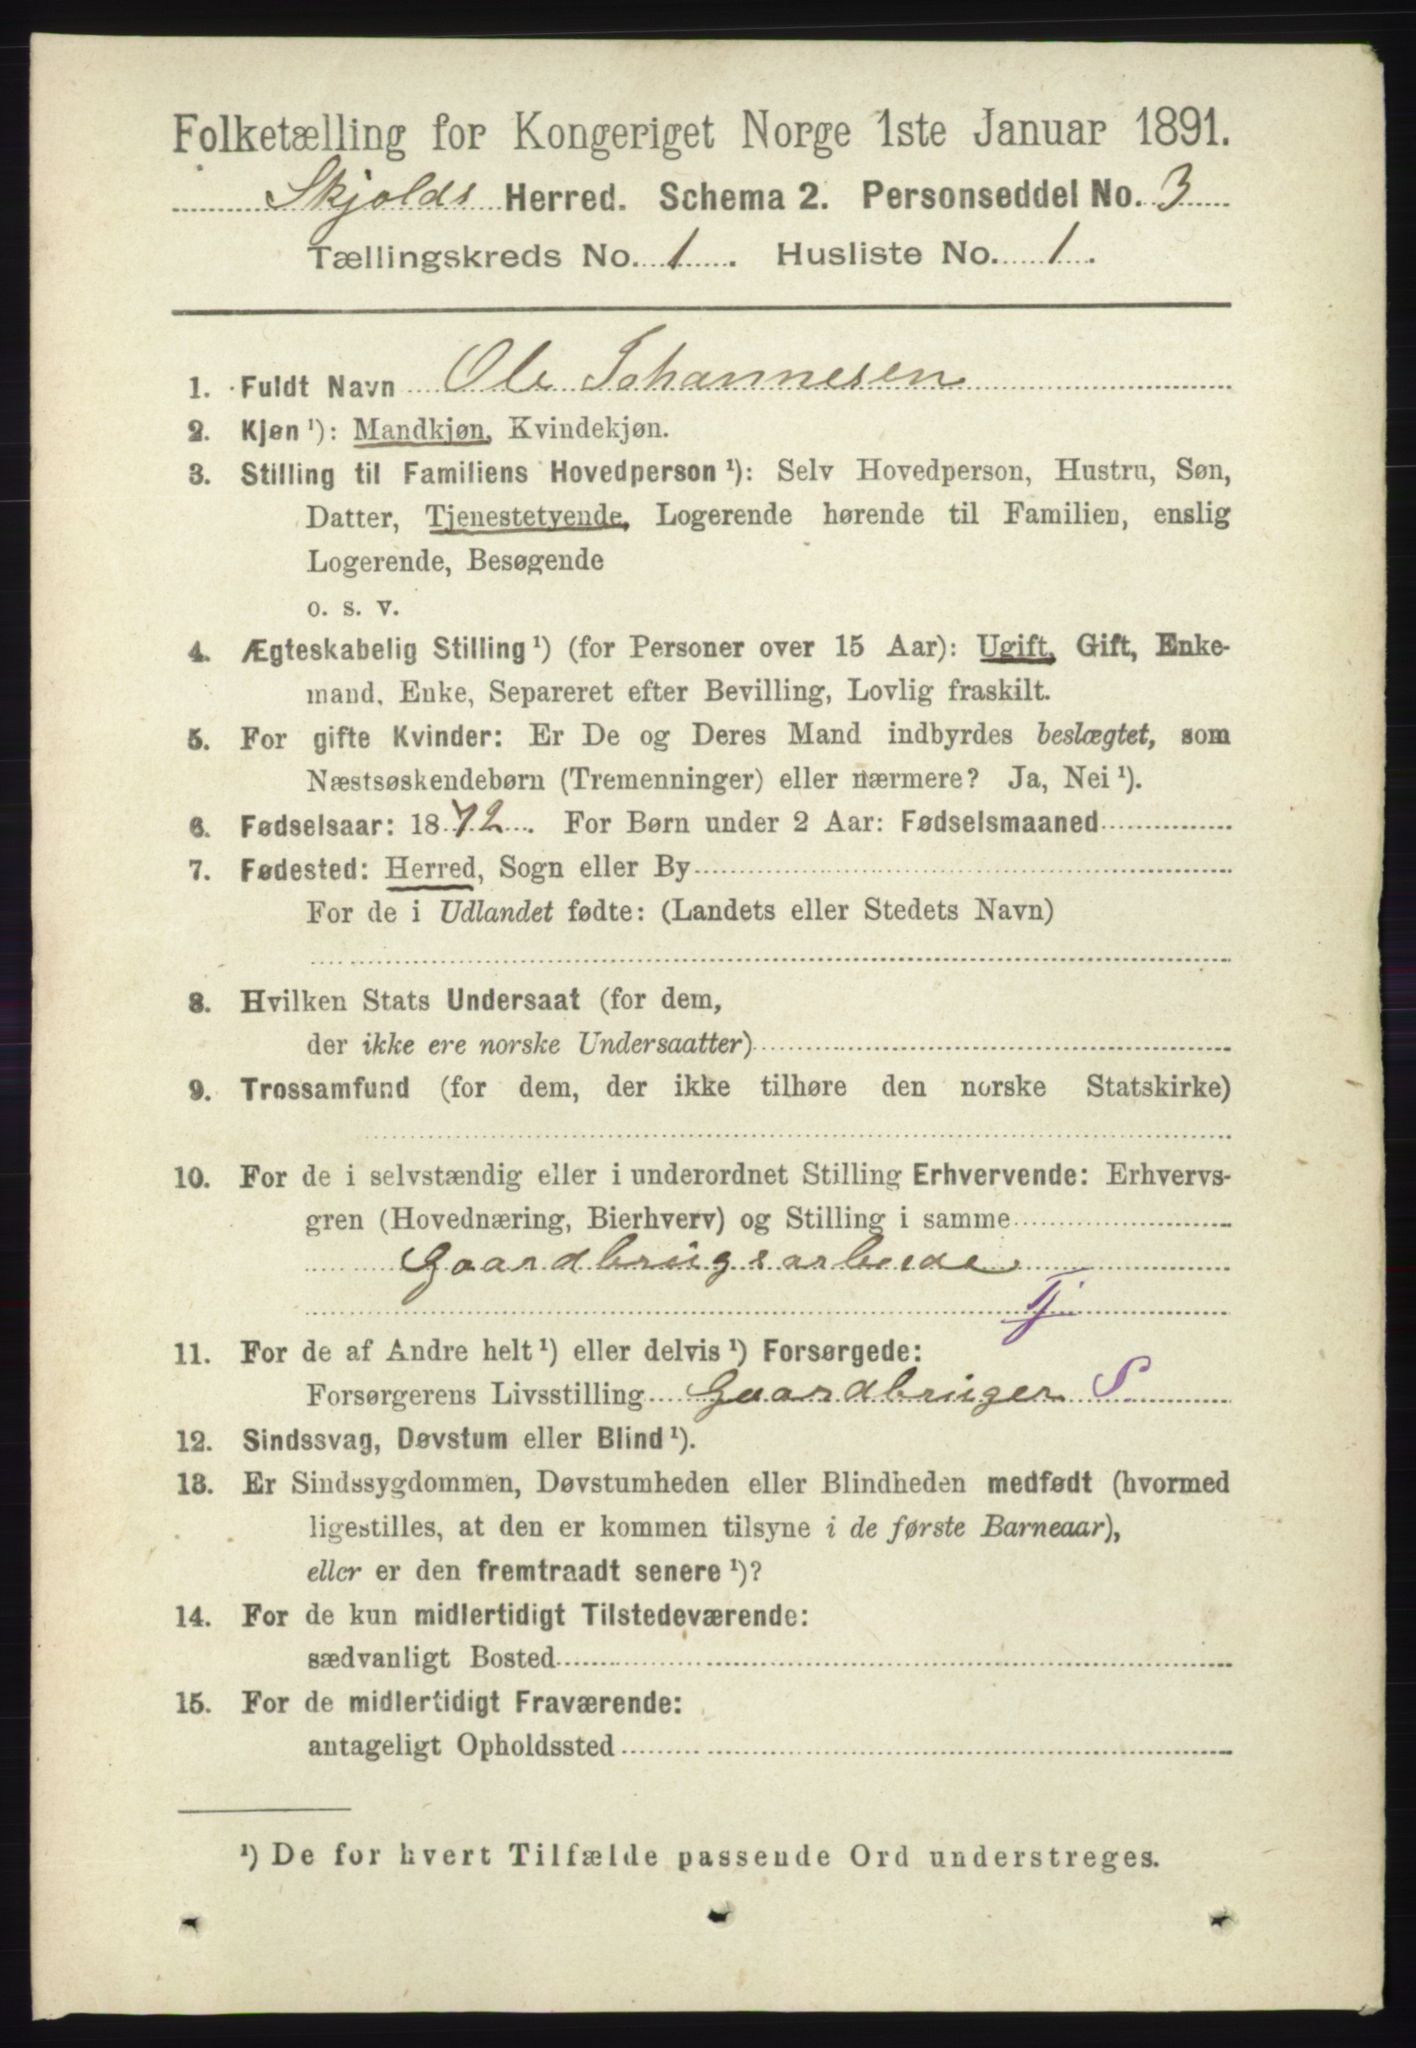 Folketælling for Kongeriget Norge 1ste Januar 1891.
Skjolds Herred. Schema 2. Personseddel No. 3
Tællingskreds No. 1. Husliste No. 1.
1. Fuldt Navn Ole Johannesen
2. Kjøn¹): Mandkjøn, Kvindekjøn.
3. Stilling til Familiens Hovedperson¹): Selv Hovedperson, Hustru, Søn,
Datter, Tjenestetyende, Logerende hørende til Familien, enslig
Logerende, Besøgende
o. s. v.
4. Ægteskabelig Stilling¹) (for Personer over 15 Aar): Ugift, Gift, Enke-
mand, Enke, Separeret efter Bevilling, Lovlig fraskilt.
5. For gifte Kvinder: Er De og Deres Mand indbyrdes beslægtet, som
Næstsøskendebørn (Tremenninger) eller nærmere? Ja, Nei¹).
6. Fødselsaar: 1872. For Børn under 2 Aar: Fødselsmaaned
7. Fødested: Herred, Sogn eller By
For de i Udlandet fødte: (Landets eller Stedets Navn)
8. Hvilken Stats Undersaat (for dem,
der ikke ere norske Undersaatter)
9. Trossamfund (for dem, der ikke tilhøre den norske Statskirke)
10. For de i selvstændig eller i underordnet Stilling Erhvervende: Erhvervs-
gren (Hovednæring, Bierhverv) og Stilling i samme
Gaardbrugsarbeide
Tj
11. For de af Andre helt¹) eller delvis¹) Forsørgede:
Forsørgerens Livsstilling Gaardbruger S
12. Sindssvag, Døvstum eller Blind¹).
13. Er Sindssygdommen, Døvstumheden eller Blindheden medfødt (hvormed
ligestilles, at den er kommen tilsyne i de første Barneaar),
eller er den fremtraadt senere¹)?
14. For de kun midlertidigt Tilstedeværende:
sædvanligt Bosted
15. For de midlertidigt Fraværende:
antageligt Opholdssted
¹) De for hvert Tilfælde passende Ord understreges.